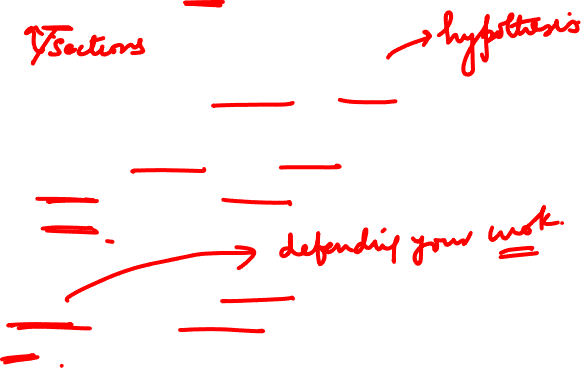 sections
hypothesis
defending your work.